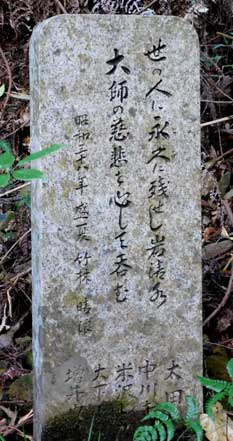 世の人に永久に残せし岩清水
大師の慈悲を心して呑む
昭和三十八年 盛夏 竹
太田
中川
米沢
大下